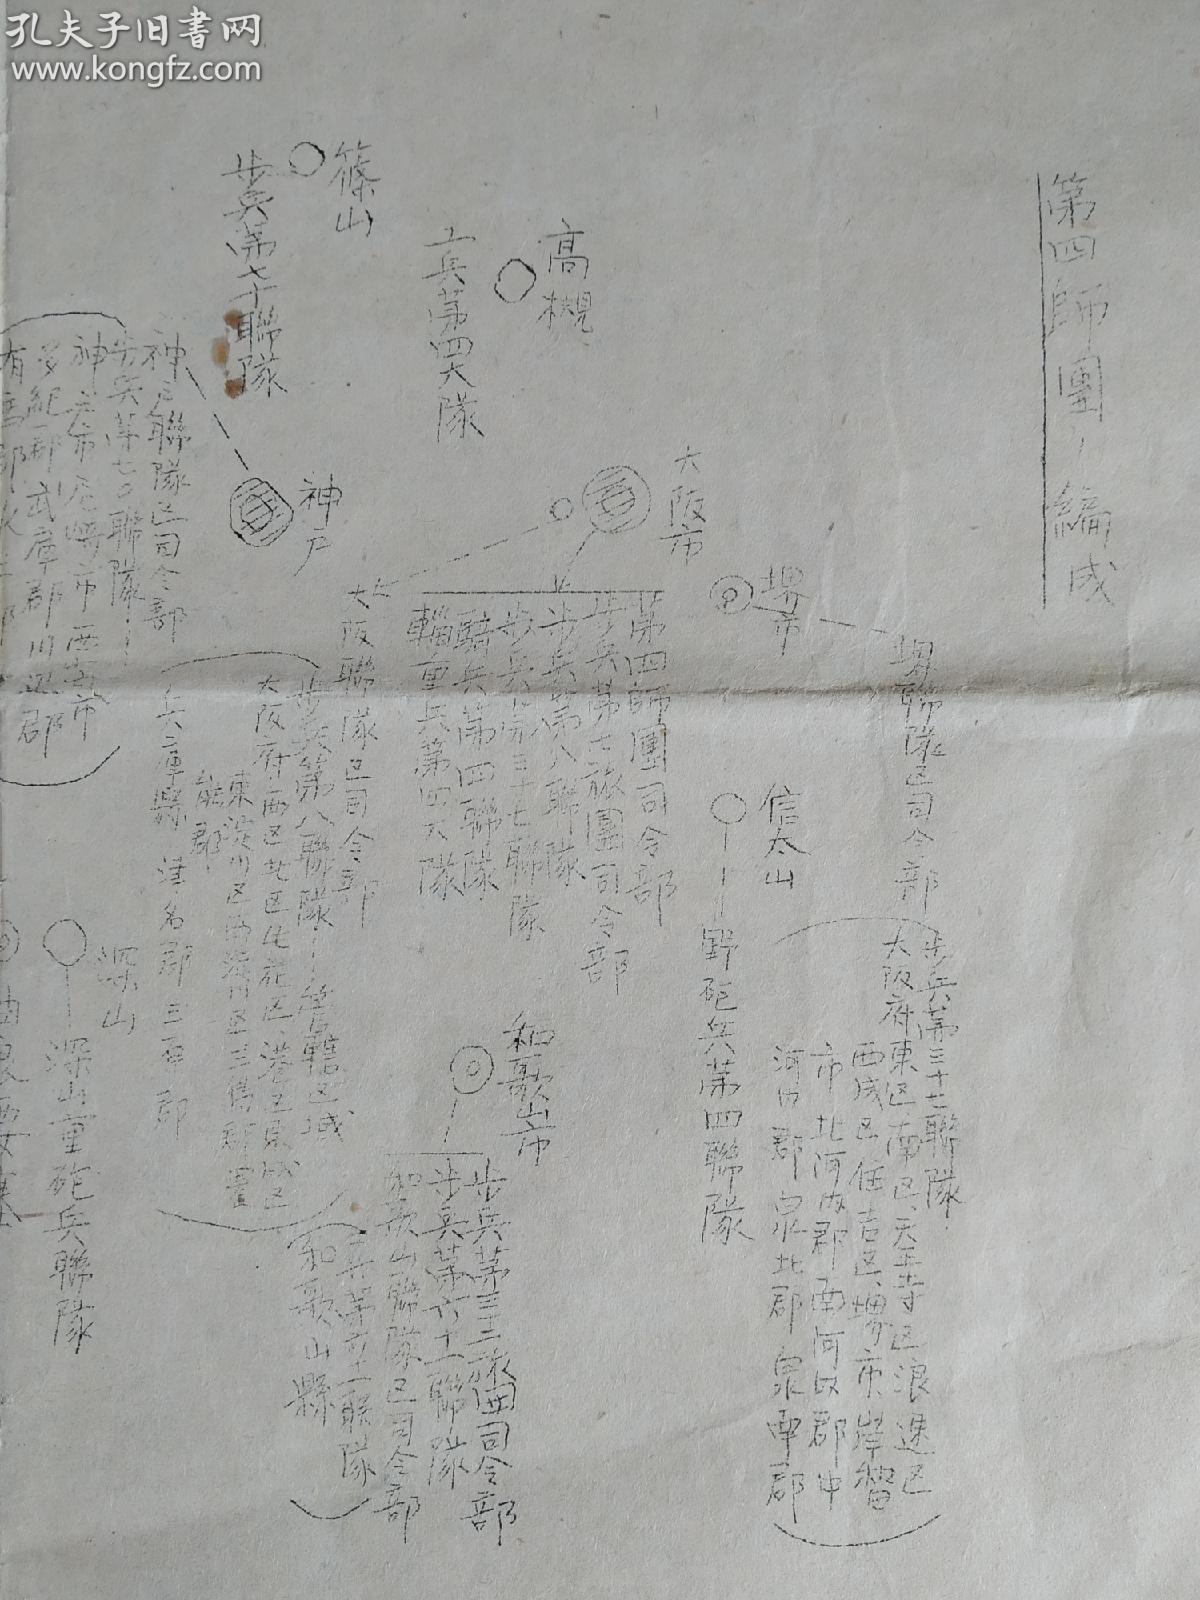 孔夫子旧書网
www.kongfz.com
第四師團ノ編成
堺聯隊区司令部
步兵第三十七聯隊
大阪府東区、南区、天王寺区浪速区
西成区住吉区、堺市岸和田
市北河内郡南河内郡中
河内郡泉北郡泉南郡
堺市
信太山
野砲兵第四聯隊
大阪市
第四師團司令部
步兵第七旅團司令部
步兵第八聯隊
步兵第三十七聯隊
騎兵第四聯隊
輜重兵第四大隊
高槻
工兵第四大隊
和歌山市
步兵第三二旅團司令部
步兵第六十一聯隊
和歌山聯隊区司令部
和歌山縣
大阪聯隊区司令部
步兵第八聯隊ー管轄区域
大阪府西区北区此花区、港区東成区
東淀川区西淀川区三島郡豊
能郡
兵庫縣 津名郡三原郡
篠山
步兵第七十聯隊
神戸
神戸聯隊区司令部
步兵第七〇聯隊ー
神戸市尼崎市西宮市
多紀郡武庫郡川辺郡
深山
深山重砲兵聯隊
由良要塞